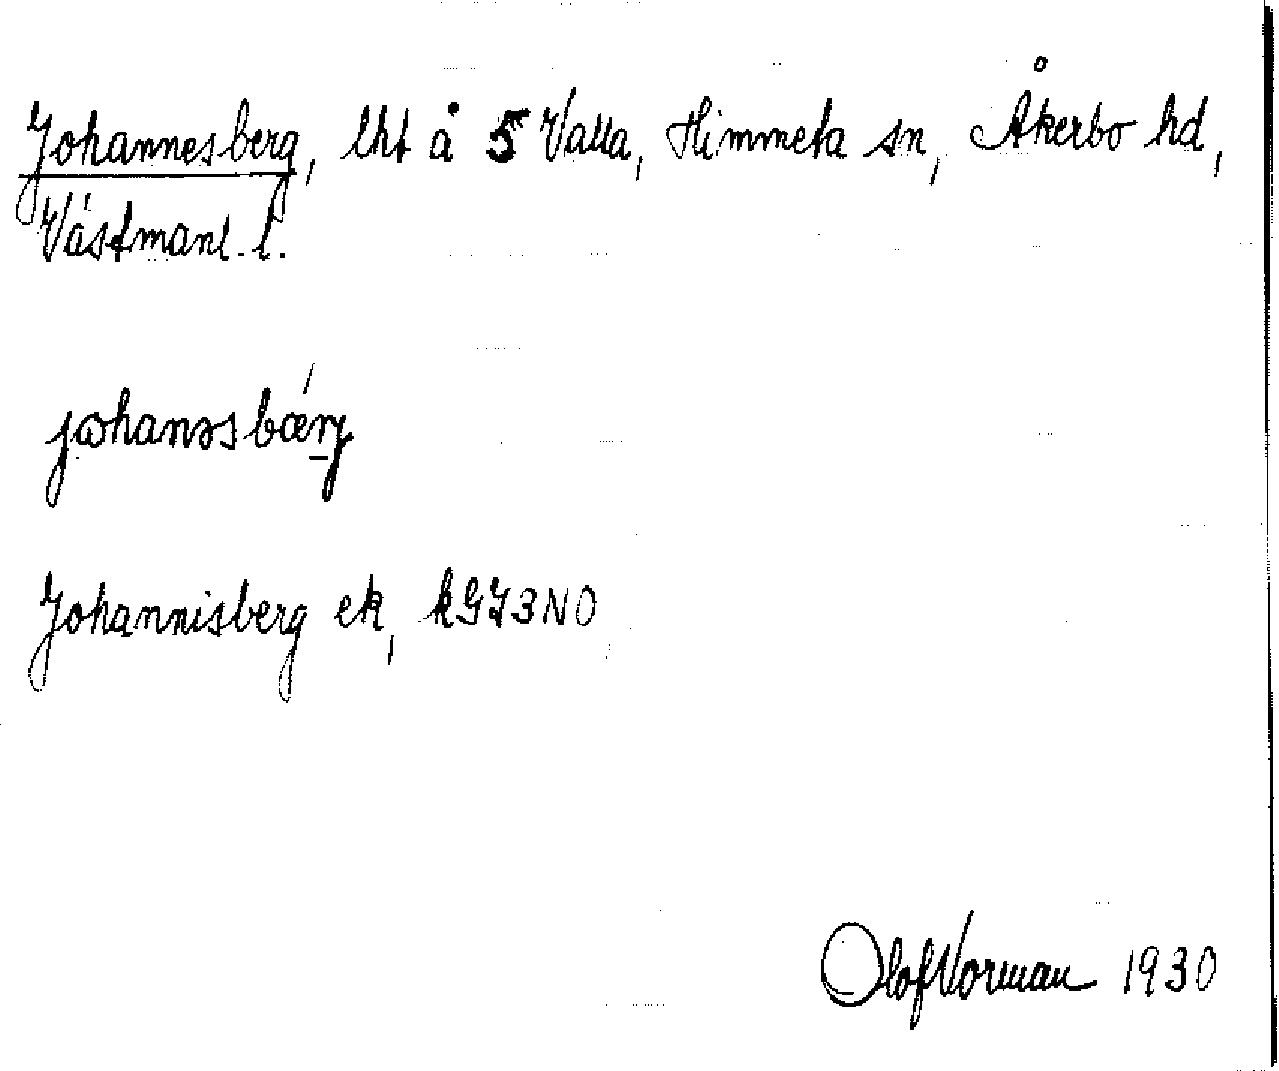 Johannesberg, lht å 5 Valla, Himmeta sn, Åkerbo hd,
Västmanl. l.
johanəsbærj
Johannisberg ek, kGJ3NO
Olof Norman 1930